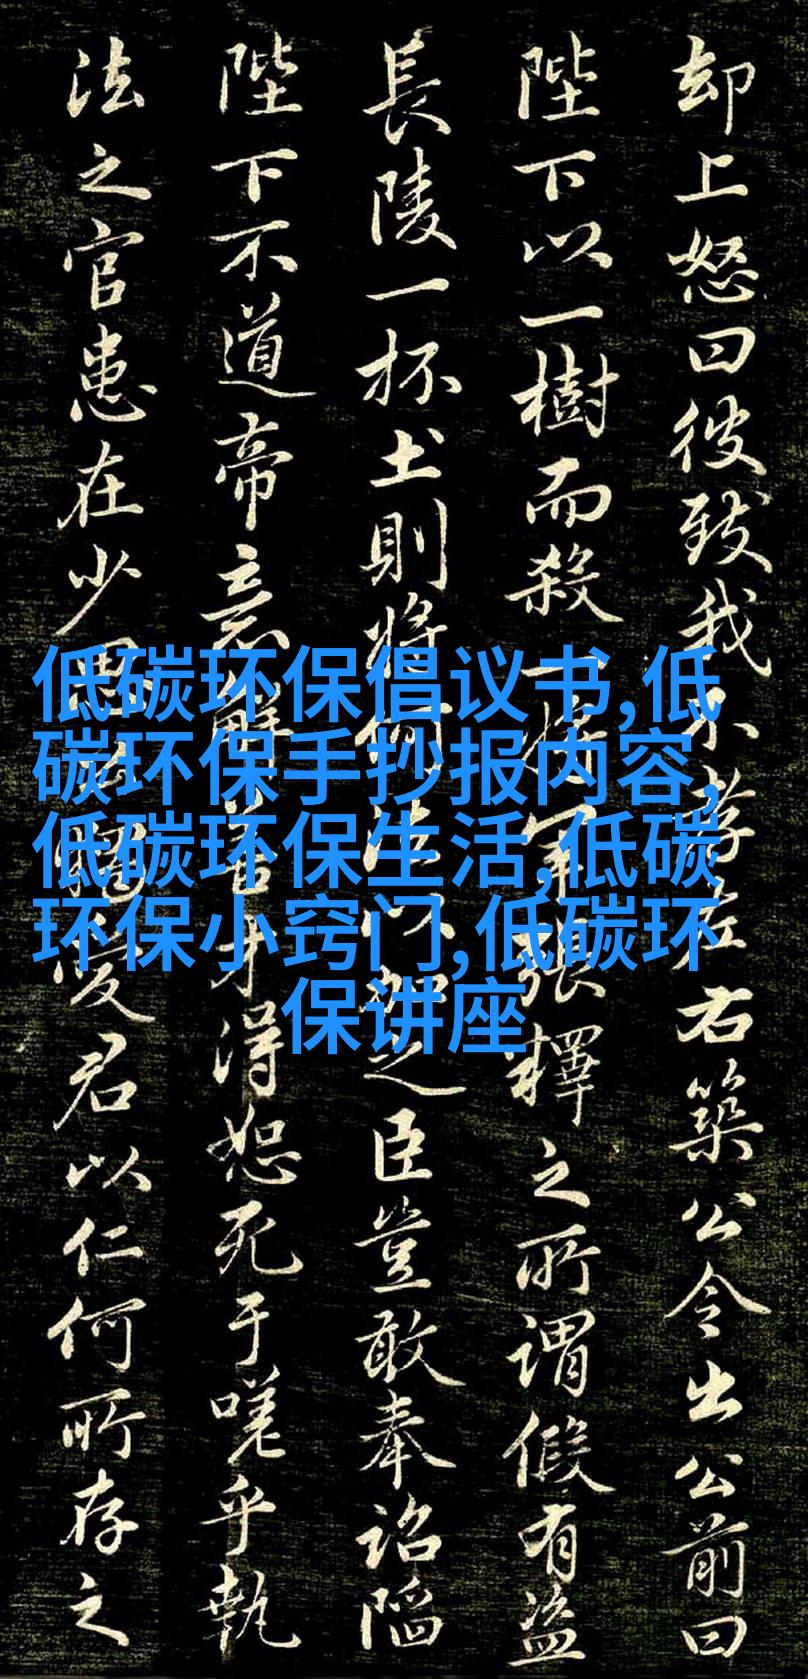 却上怒曰彼致我不左右築公令出公前曰
陛下以一樹而殺一軍張釋之所謂假有盜
長陵一抔土則將法以之臣豈敢奉詔陷
陛下不道帝意才得恕死于嗟乎執
法之官患在少愛君以仁何所存之
低碳环保倡议书,低
碳环保手抄报内容,
低碳环保生活,低碳
环保小窍门,低碳环
保讲座